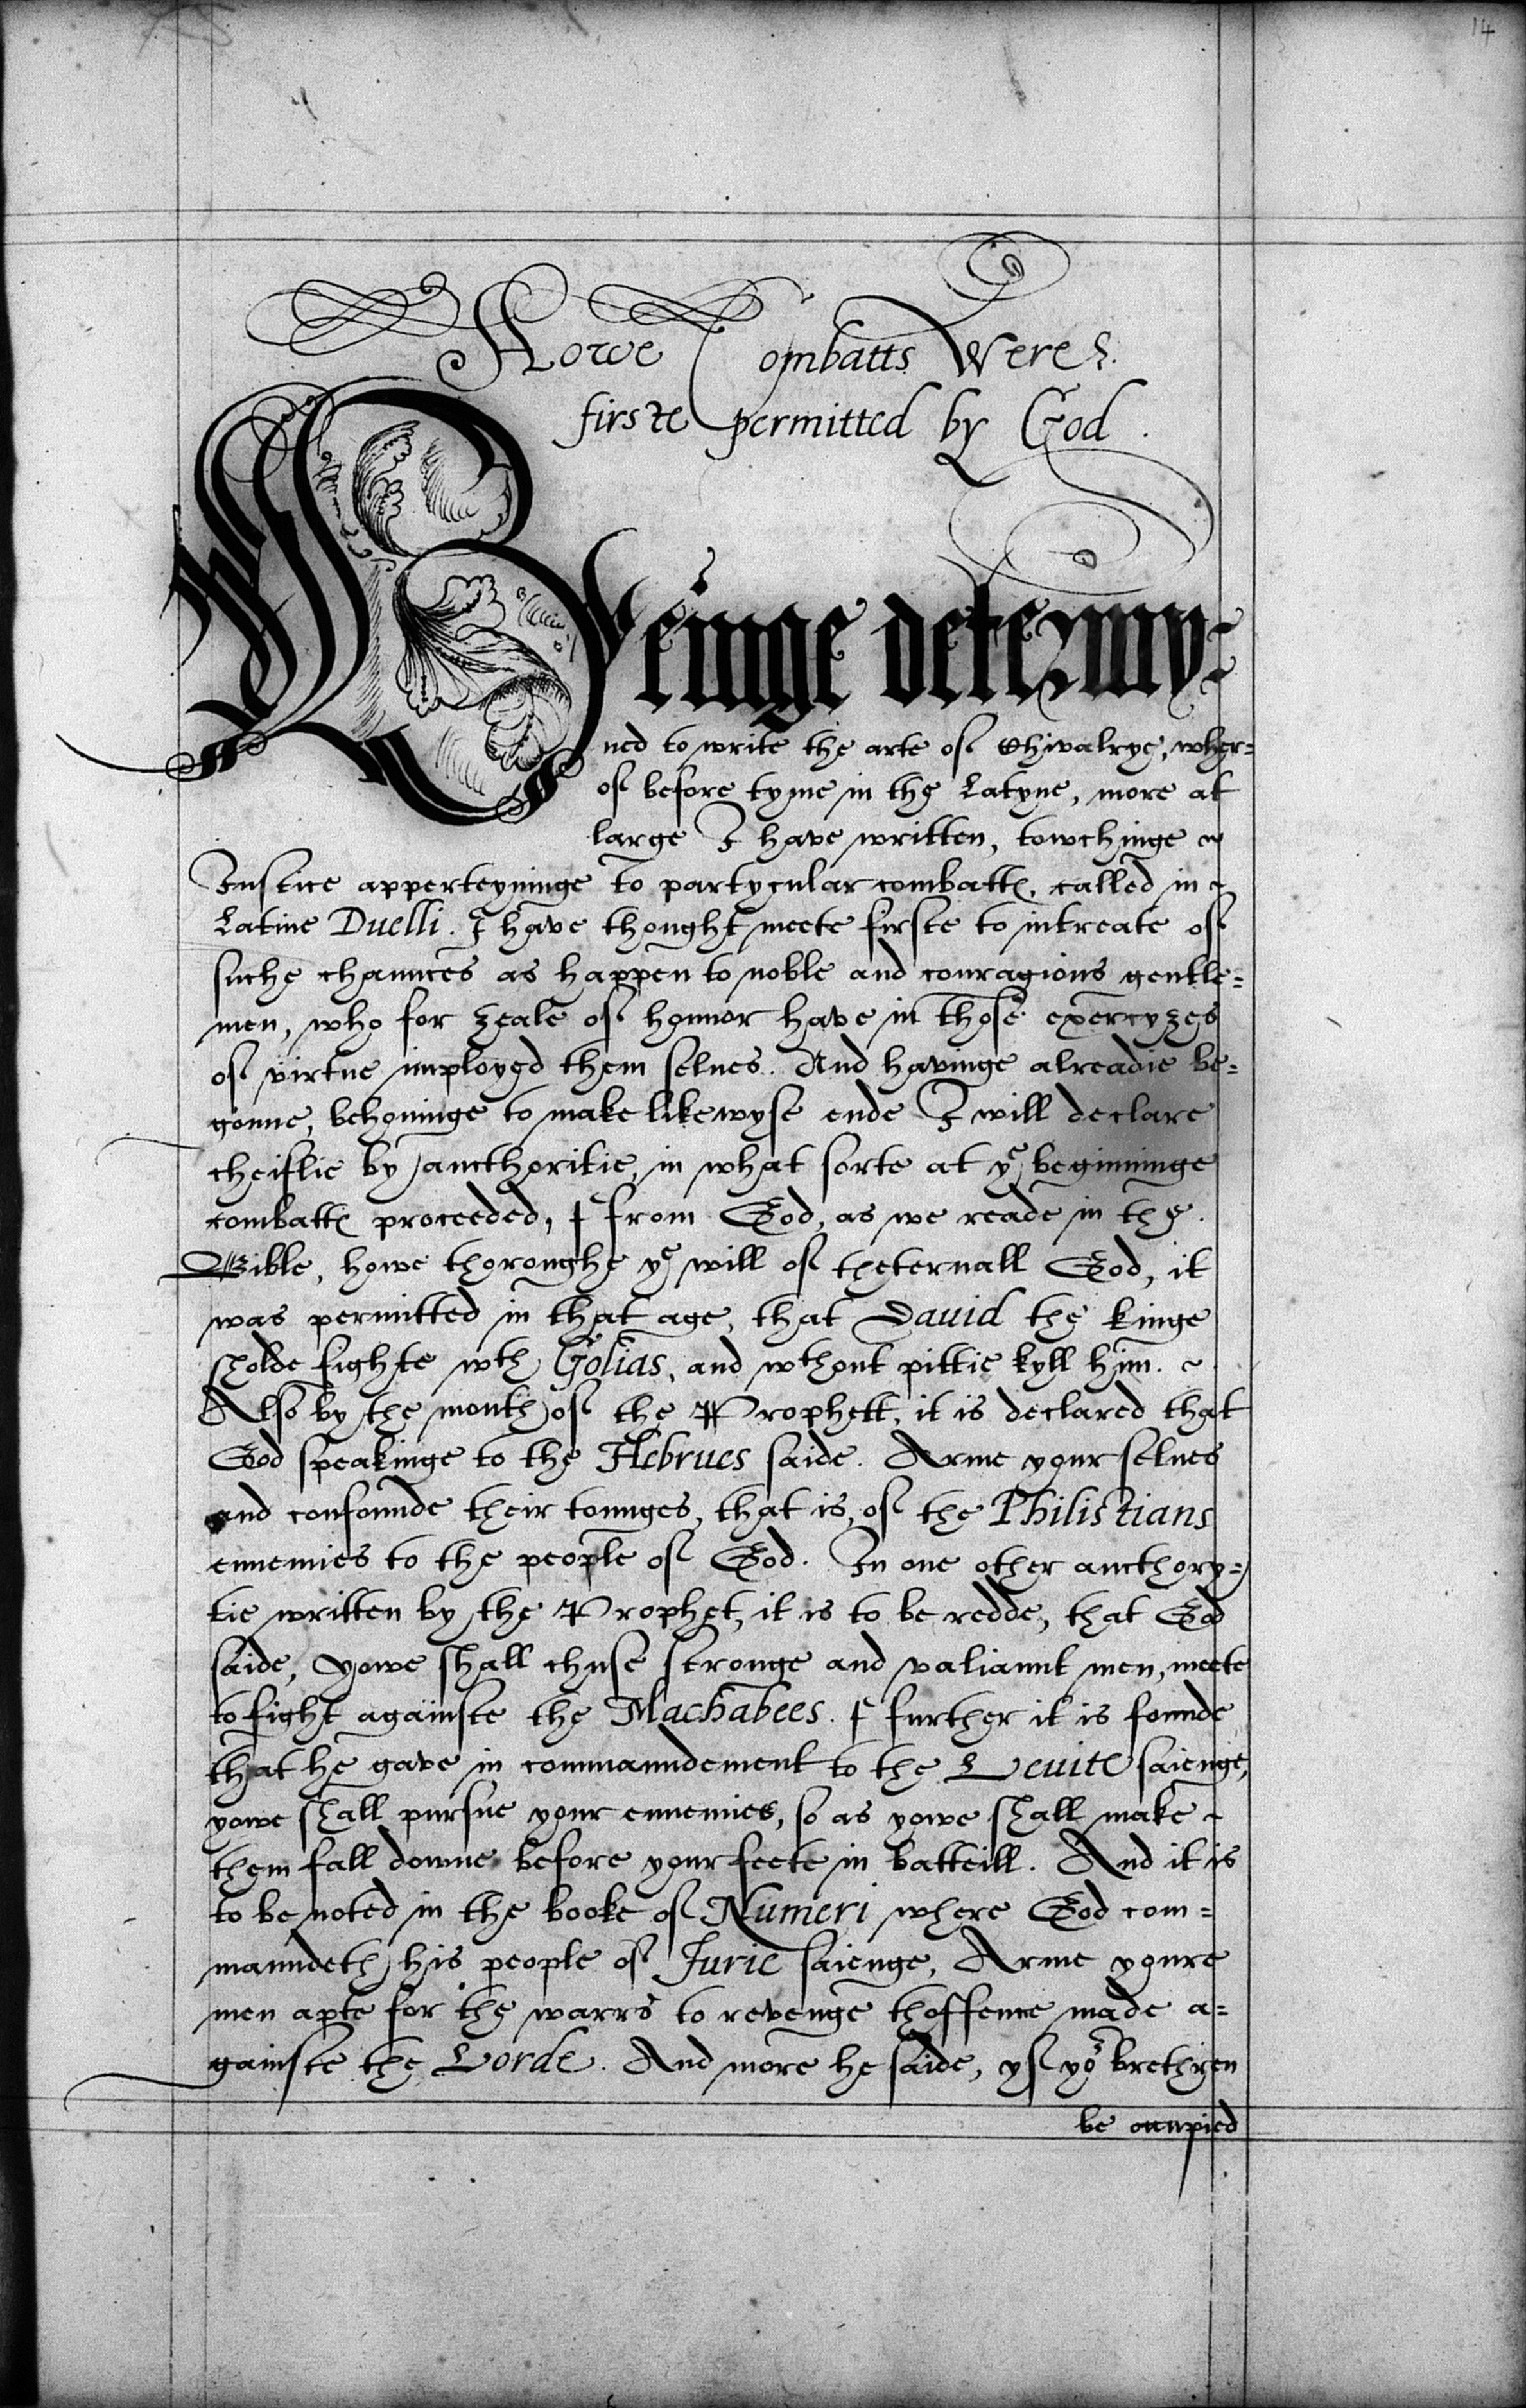 14
Howe Combatts Were
firste permitted by God.
Beinge determy=
ned to write the arte of Chivalrye, wher=
of before tyme in the Latyne, more at
large I have written, towchinge ~
Iustice apperteyninge to partycular combattes, called in ~
Latine Duelli. I have thought meete firste to intreate of
suche chaunces as happen to noble and couragious gentle=
men, who for zeale of honnor have in those exercyzes
of virtue imployed them selues. And havinge alreadie be=
gonne, behouinge to make likewyse ende I will declare
cheiflie by aucthoritie, in what sorte at ye beginninge
combattes proceeded, & from God, as we reade in the
Bible, howe thoroughe ye will of theternall God, it
was permitted in that age, that Dauid the kinge
sholde fighte wth Golias, and wthout pittie kyll him. ~
Also by the mouth of the Prophett, it is declared that
God speakinge to the Hebrues saide. Arme your selues
and confounde their tounges, that is, of the Philistians
ennemies to the people of God. In one other aucthory=
tie written by the Prophet, it is to be redde, that God
saide, yowe shall chuse stronge and valiaunt men, meete
to fight againste the Machabees. & further it is founde
that he gave in commaundement to the Leuite saienge,
yowe shall pursue your ennemies, so as yowe shall make ~
them fall downe before your feete in batteill. And it is
to be noted in the booke of Numeri where God com=
maundeth his people of Jurie saienge, Arme youre
men apte for the warrs to revenge thoffence made a=
gainste the Lorde. And more he saide, yf yor brethren
be occupied